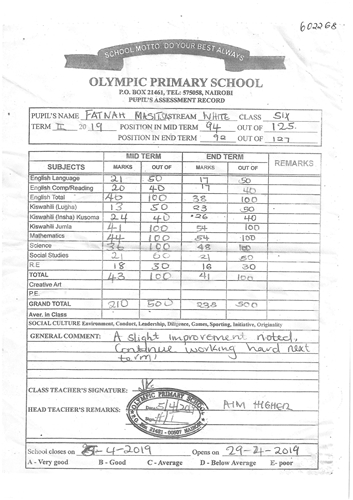 602268
SCHOOL MOTTO: DO YOUR BEST ALWAYS
OLYMPIC PRIMARY SCHOOL
P.O. BOX 21461, TEL: 575058, NAIROBI
PUPIL'S ASSESSMENT RECORD
PUPIL'S NAME FATNAH MASITU STREAM WHITE CLASS SIX
TERM II 2019 POSITION IN MID TERM 94 OUT OF 125
POSITION IN END TERM 90 OUT OF 127
MID TERM END TERM REMARKS
SUBJECTS MARKS OUT OF MARKS OUT OF
English Language 21 50 17 50
English Comp/Reading 20 40 17 40
English Total 40 100 38 100
Kiswahili (Lugha) 13 50 23 50
Kiswahili (Insha) Kusoma 24 40 26 40
Kiswahili Jumla 41 100 54 100
Mathematics 44 100 54 100
Science 36 100 48 100
Social Studies 21 60 21 50
R.E 18 30 16 30
TOTAL 43 100 41 100
Creative Art
P.E.
GRAND TOTAL 210 500 500
Aver. in Class
SOCIAL CULTURE Environment, Conduct, Leadership, Diligence, Games, Sporting, Initiative, Originality
GENERAL COMMENT: A slight improvement noted,
Continue working hard next
term!
CLASS TEACHER'S SIGNATURE:
OLYMPIC PRIMARY SCHOOL
HEAD TEACHER'S REMARKS: AIM HIGHER
Date
Sign
School closes on 5-4-2019 Opens on 29-4-2019
A - Very good B - Good C - Average D - Below Average E- poor